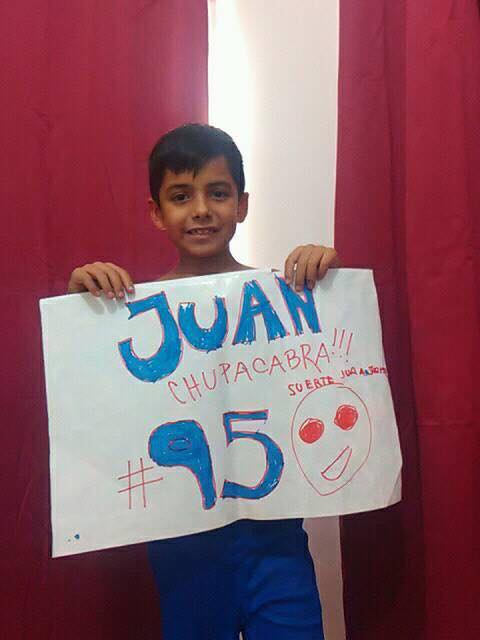 JUAN
CHUPACABRA!!!
SUERTE
#95